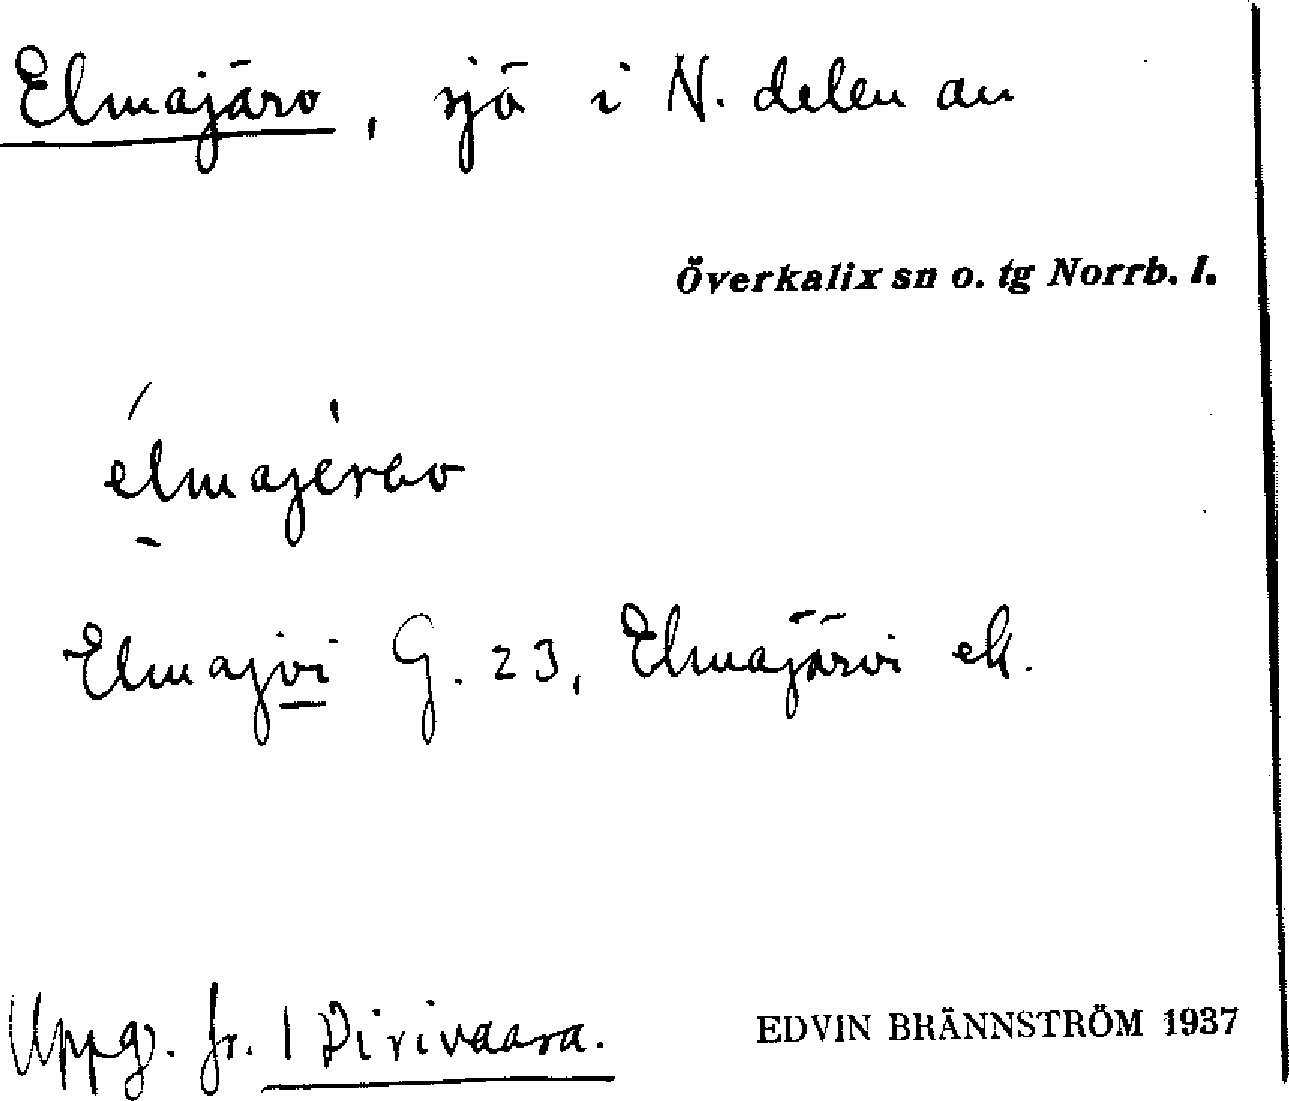 Elmajärv, sjö i N. delen av
Överkalix sn o. tg Norrb. l.
elmajerev
Elmajvi G. 23, Elmajärvi ek.
Uppg. fr. 1 Dirivaara.
EDVIN BRÄNNSTRÖM 1937